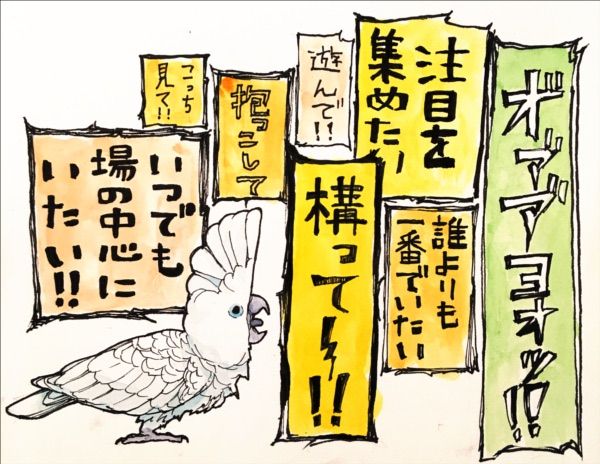 ギァアヨオッ!!
注目を
集めたい
誰よりも
一番でいたい
遊んで!!
構って〜!!
抱っこして
こっち
見て!!
いつでも
場の中心に
いたい!!